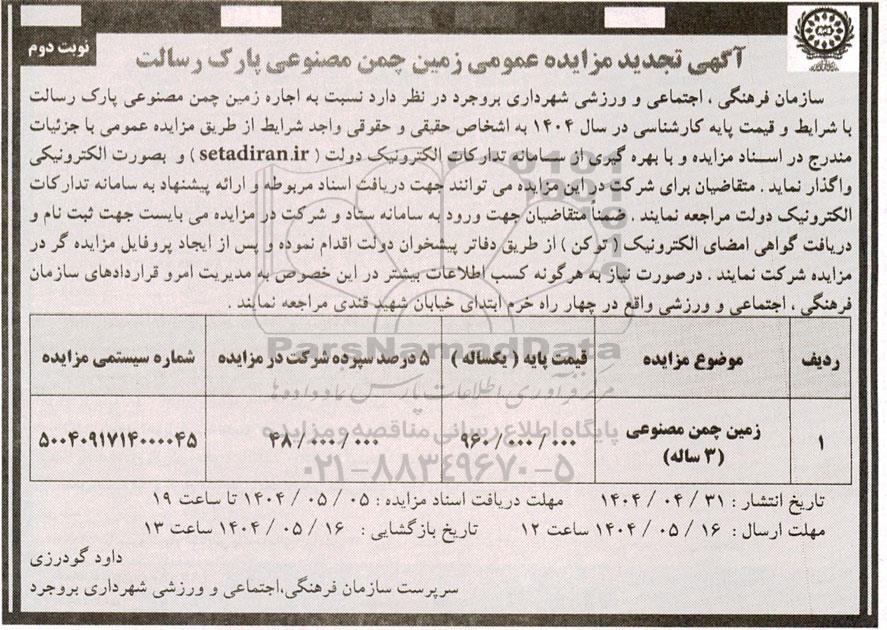 نوبت دوم
آگهی تجدید مزایده عمومی زمین چمن مصنوعی پارک رسالت
سازمان فرهنگی ، اجتماعی و ورزشی شهرداری بروجرد در نظر دارد نسبت به اجاره زمین چمن مصنوعی پارک رسالت
با شرایط و قیمت پایه کارشناسی در سال ۱۴۰۴ به اشخاص حقیقی و حقوقی واجد شرایط از طریق مزایده عمومی با جزئیات
مندرج در اسناد مزایده و با بهره گیری از سامانه تدارکات الکترونیک دولت ( setadiran.ir ) و بصورت الکترونیکی
واگذار نماید . متقاضیان برای شرکت در این مزایده می توانند جهت دریافت اسناد مربوطه و ارائه پیشنهاد به سامانه تدارکات
الکترونیک دولت مراجعه نمایند . ضمناً متقاضیان جهت ورود به سامانه ستاد و شرکت در مزایده می بایست جهت ثبت نام و
دریافت گواهی امضای الکترونیک ( توکن ) از طریق دفاتر پیشخوان دولت اقدام نموده و پس از ایجاد پروفایل مزایده گر در
مزایده شرکت نمایند . درصورت نیاز به هرگونه کسب اطلاعات بیشتر در این خصوص به مدیریت امرو قراردادهای سازمان
فرهنگی ، اجتماعی و ورزشی واقع در چهار راه خرم ابتدای خیابان شهید قندی مراجعه نمایند .
ردیف موضوع مزایده قیمت پایه ( یکساله ) ۵ درصد سپرده شرکت در مزایده شماره سیستمی مزایده
۱ زمین چمن مصنوعی (۳ ساله) ۹۶۰/۰۰۰/۰۰۰ ۴۸/۰۰۰/۰۰۰ ۵۰۰۴۰۹۱۷۱۴۰۰۰۰۴۵
ParsNamadData
مرکز فرآوری اطلاعات پارس نماد داده ها
پایگاه اطلاع رسانی مناقصه و مزایده
۰۲۱-۸۸۳۴۹۶۷۰-۵
تاریخ انتشار : ۳۱ / ۰۴ / ۱۴۰۴ مهلت دریافت اسناد مزایده : ۰۵ / ۰۵ / ۱۴۰۴ تا ساعت ۱۹
مهلت ارسال : ۱۶ / ۰۵ / ۱۴۰۴ ساعت ۱۲ تاریخ بازگشایی : ۱۶ / ۰۵ / ۱۴۰۴ ساعت ۱۳
داود گودرزی
سرپرست سازمان فرهنگی،اجتماعی و ورزشی شهرداری بروجرد